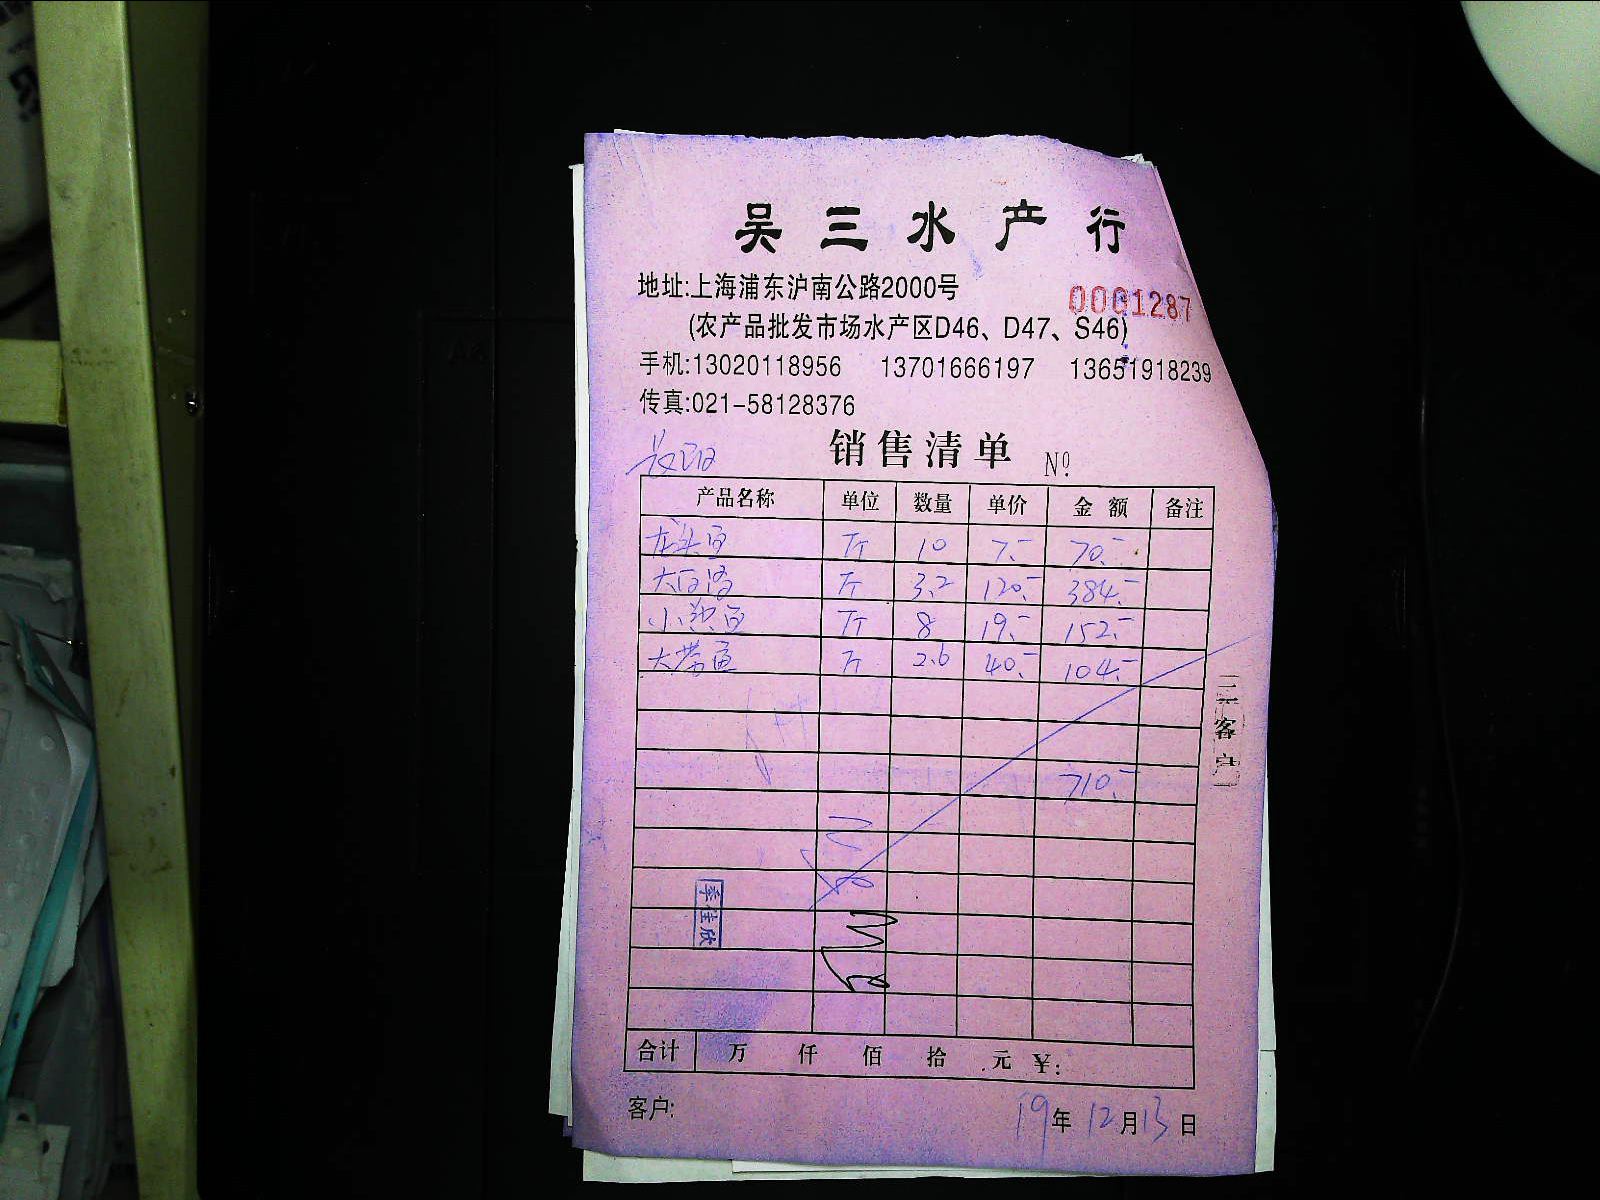 吴三水产行
地址:上海浦东沪南公路2000号
0001287
(农产品批发市场水产区D46、D47、S46)
手机:13020118956 13701666197 13651918239
传真:021-58128376
销售清单 Nº
产品名称 单位 数量 单价 金额 备注
龙头鱼 斤 10 7.- 70.-
大白 斤 3.2 120.- 384.-
小 鱼 斤 8 19.- 152.-
大带鱼 斤 2.6 40.- 104.-
710.-
二客户
李佳欣
合计 万 仟 佰 拾 元 ¥:
客户:
19年12月13日